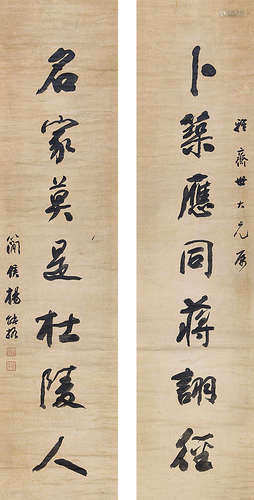 卜築應同蔣詡徑
齋世大兄屬
名家莫是杜陵人
簡侯楊能格